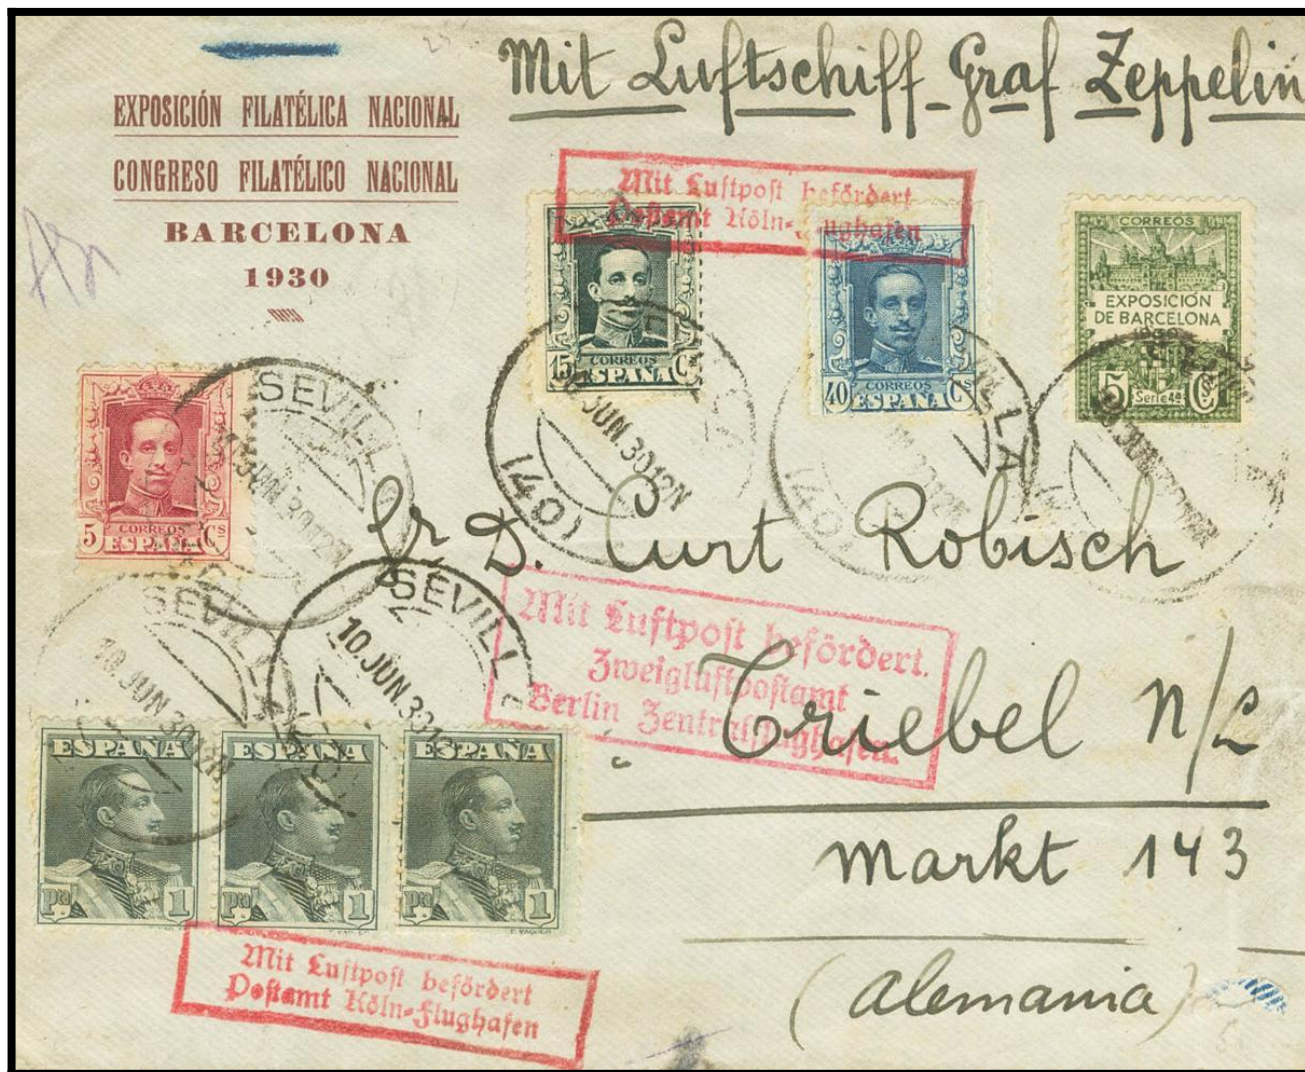 Mit Luftschiff Graf Zeppelin
EXPOSICIÓN FILATÉLICA NACIONAL
CONGRESO FILATÉLICO NACIONAL
BARCELONA
1930
Mit Luftpost befördert
Postamt Köln-Flughafen
15 CORREOS Cs
ESPAÑA
40 CORREOS Cs
ESPAÑA
CORREOS
EXPOSICIÓN
DE BARCELONA
1930
5 Serie 4ª Cs
5 CORREOS Cs
ESPAÑA
SEVILLA
JUN.30.12N
(40)
SEVILLA
10.JUN.30
SEVILLA
10.JUN.30
Sr D. Curt Robisch
Mit Luftpost befördert.
Zweigluftpostamt
Berlin Zentralflughafen.
Triebel N/L
Markt 143
(Alemania)
ESPAÑA
Pta 1
ESPAÑA
Pta 1
ESPAÑA
Pta 1
Mit Luftpost befördert
Postamt Köln-Flughafen